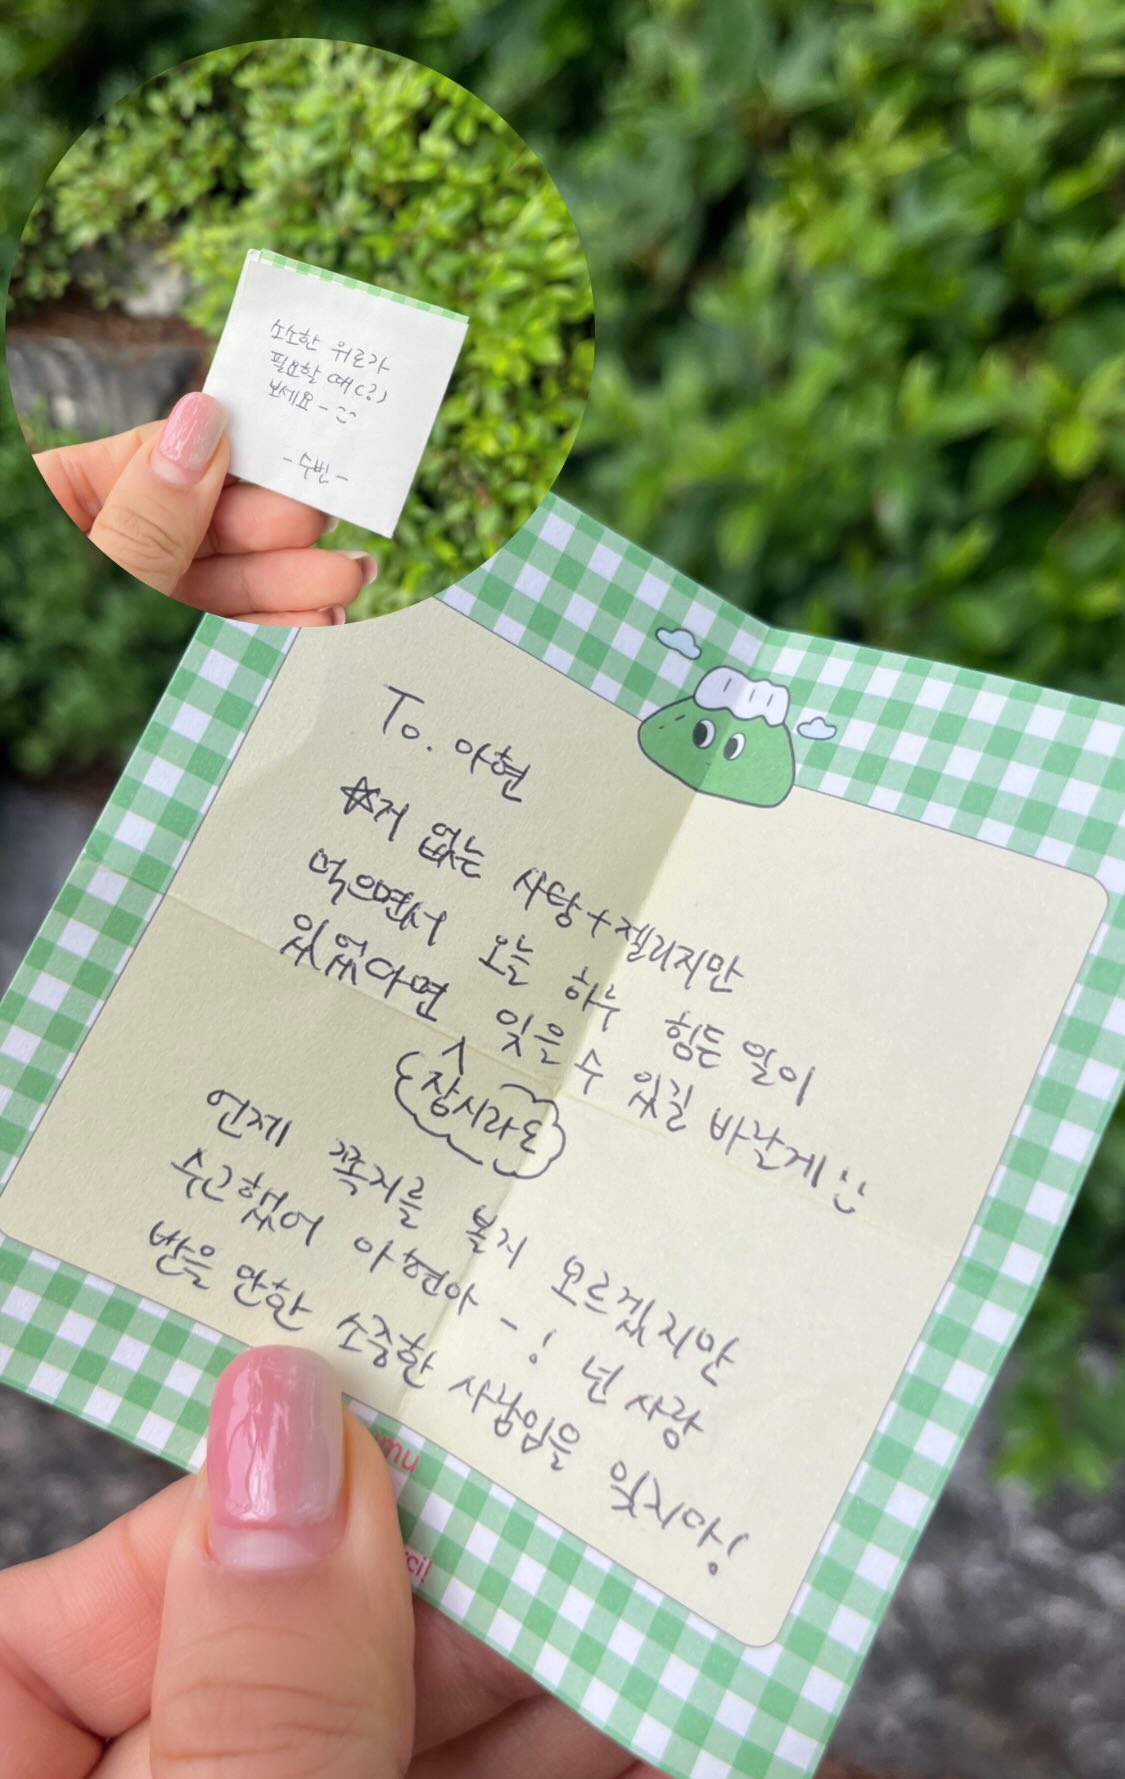 소소한 위로가
필요할 때(?)
보세요 -
- 수빈 -
To. 아현
☆거 없는 사탕+젤리지만
먹으면서 오늘 하루 힘든 일이
있었다면 잊을 수 있길 바랄게
잠시라도
언제 쪽지를 볼지 모르겠지만
수고했어 아현아 - ! 넌 사랑
받을 만한 소중한 사람임을 잊지마!
mu
ci!